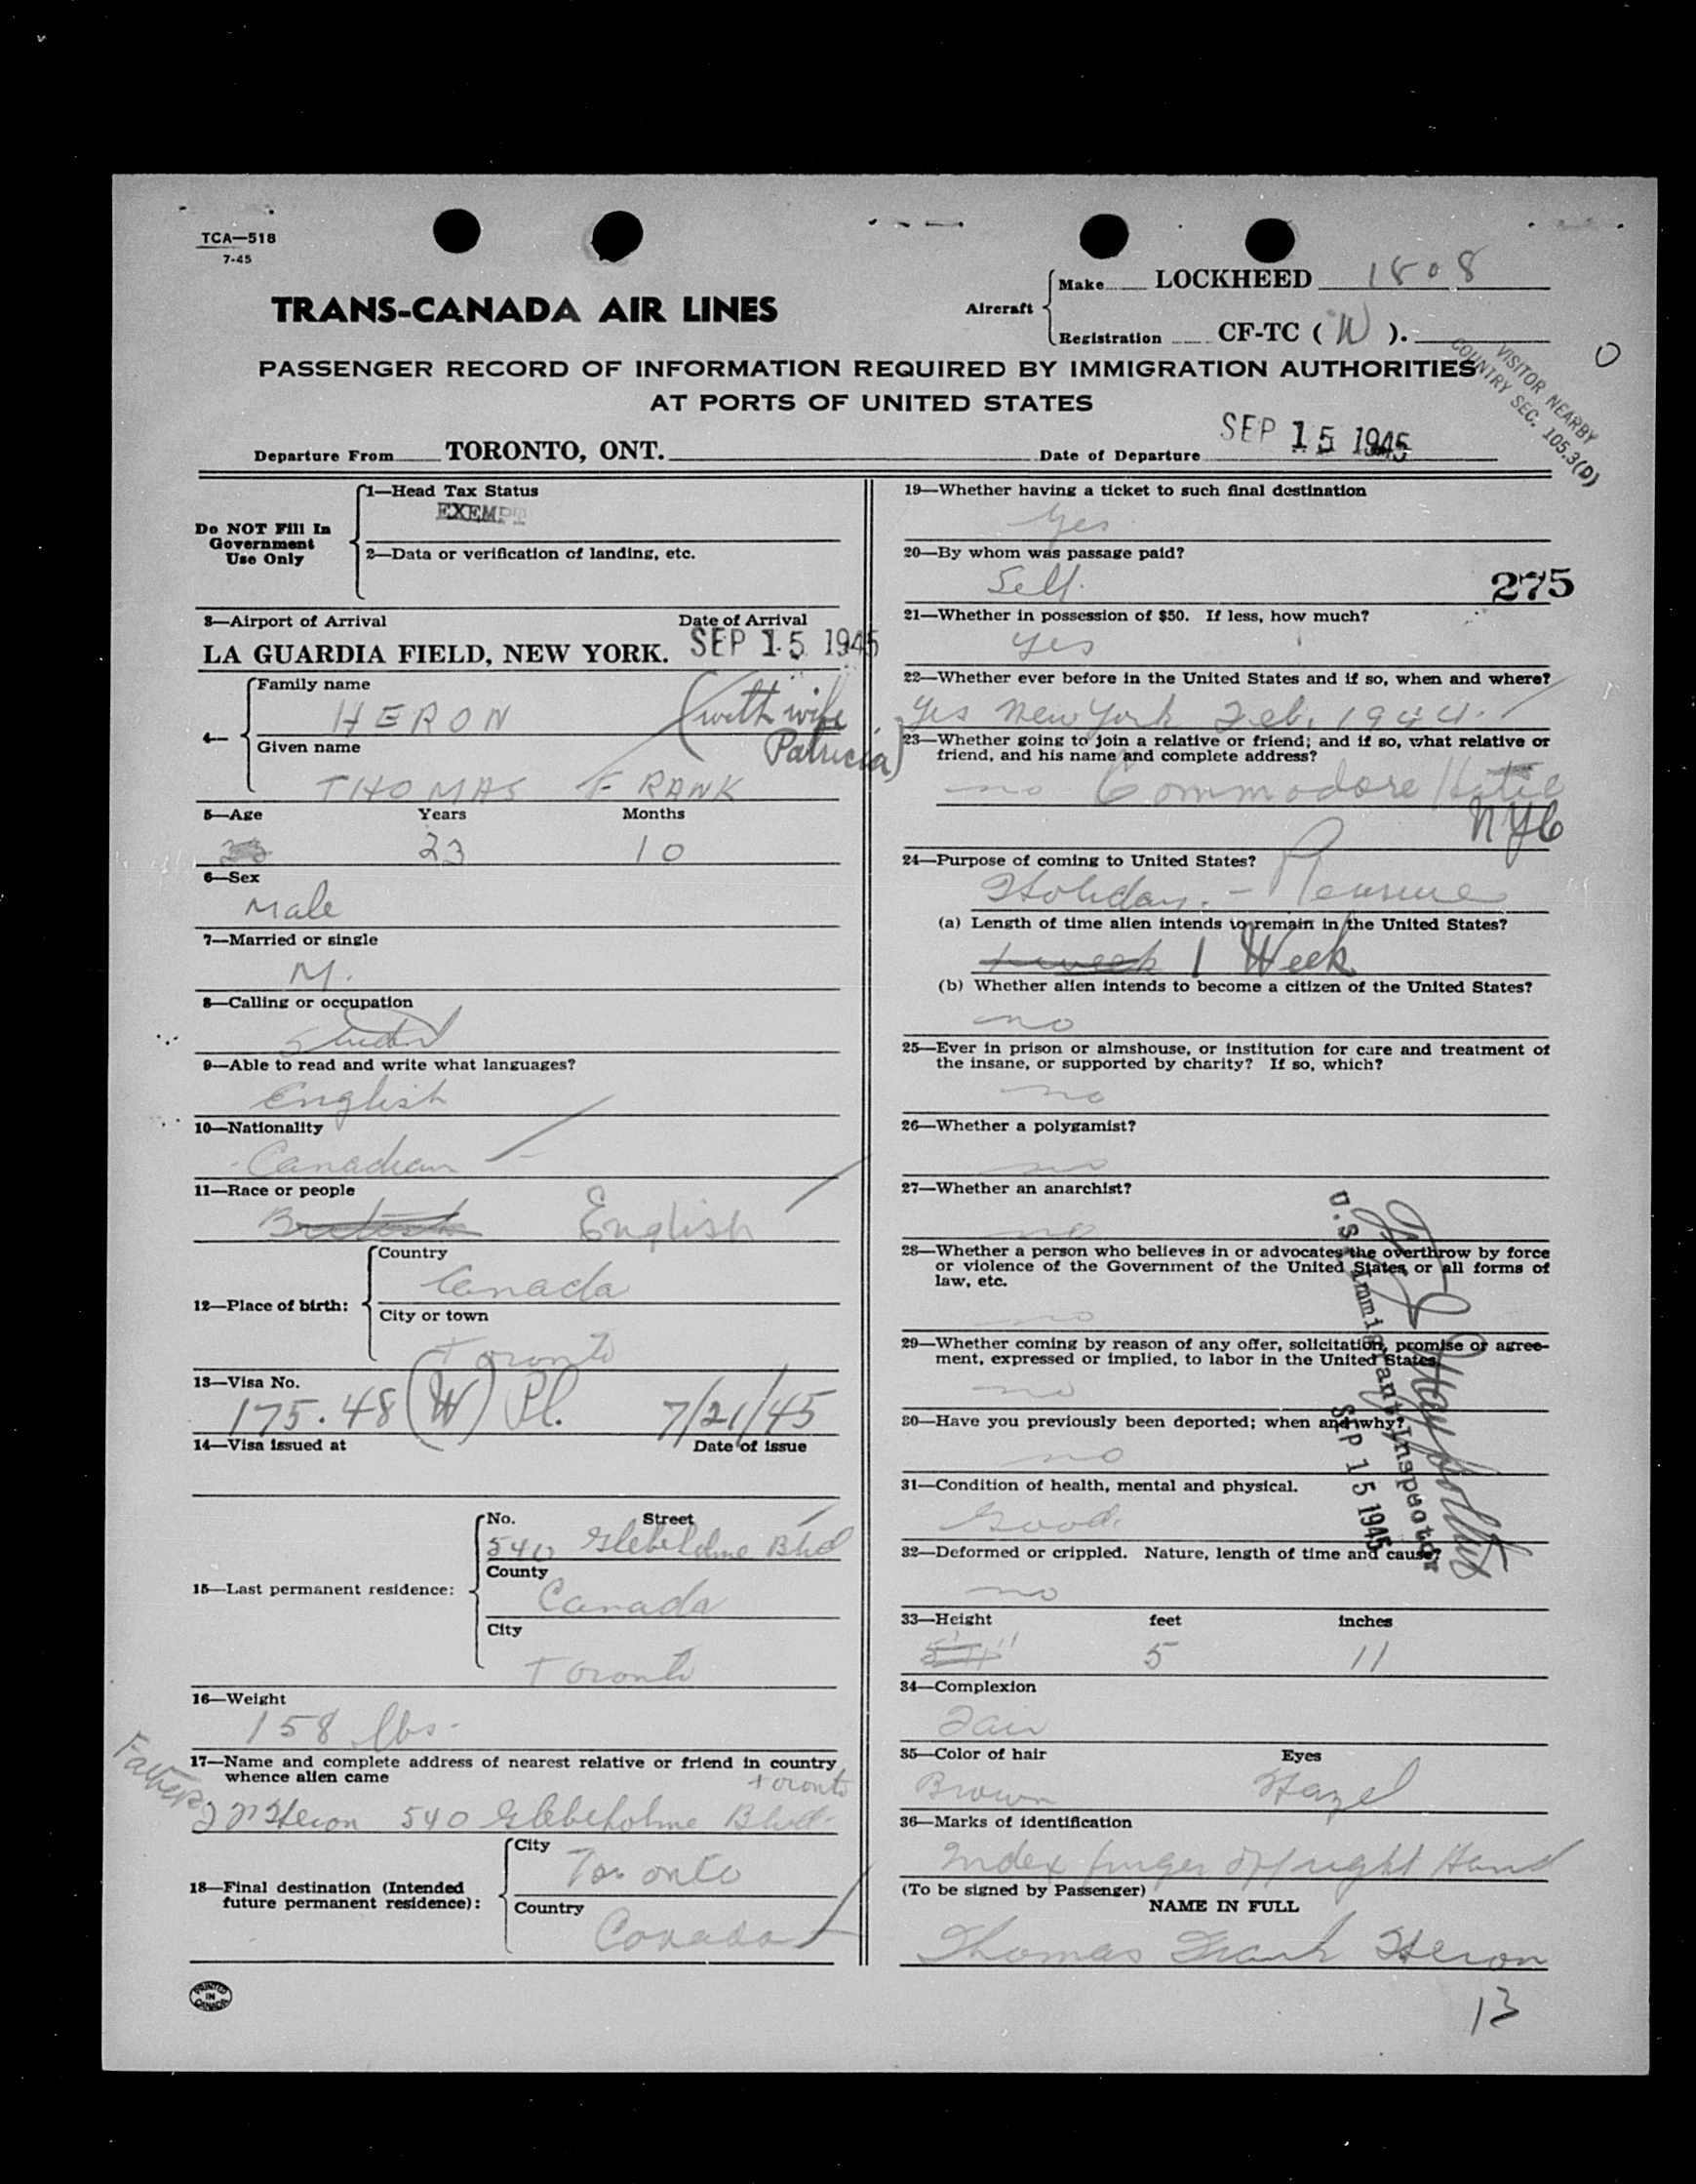 TCA—518
7-45
TRANS-CANADA AIR LINES
Aircraft
Make LOCKHEED 1808
Registration CF-TC ( W ).
PASSENGER RECORD OF INFORMATION REQUIRED BY IMMIGRATION AUTHORITIES
AT PORTS OF UNITED STATES
VISITOR NEARBY
COUNTRY SEC. 105.3(D)
0
Departure From TORONTO, ONT.
Date of Departure SEP 15 1945
Do NOT Fill In
Government
Use Only
1—Head Tax Status
EXEMPT
2—Data or verification of landing, etc.
3—Airport of Arrival Date of Arrival
LA GUARDIA FIELD, NEW YORK. SEP 15 1945
4—
Family name
HERON (with wife
Patricia)
Given name
THOMAS FRANK
5—Age Years Months
23 10
6—Sex
Male
7—Married or single
M.
8—Calling or occupation
Student
9—Able to read and write what languages?
English
10—Nationality
Canadian
11—Race or people
British English
12—Place of birth:
Country
Canada
City or town
Toronto
13—Visa No.
175.48 (W) Pl. 7/21/45
14—Visa issued at Date of issue
15—Last permanent residence:
No. Street
540 Glebeholme Blvd
County
Canada
City
Toronto
16—Weight
158 lbs.
17—Name and complete address of nearest relative or friend in country
whence alien came
Toronto
Father
Heron 540 Glebeholme Blvd.
18—Final destination (Intended
future permanent residence):
City
Toronto
Country
Canada
PRINTED
IN
CANADA
19—Whether having a ticket to such final destination
Yes
20—By whom was passage paid?
Self.
275
21—Whether in possession of $50. If less, how much?
yes
22—Whether ever before in the United States and if so, when and where?
Yes New York Feb. 1944.
23—Whether going to join a relative or friend; and if so, what relative or
friend, and his name and complete address?
no Commodore Hotel
NYC
24—Purpose of coming to United States?
Holiday. - Pleasure
(a) Length of time alien intends to remain in the United States?
1 week 1 Week
(b) Whether alien intends to become a citizen of the United States?
no
25—Ever in prison or almshouse, or institution for care and treatment of
the insane, or supported by charity? If so, which?
no
26—Whether a polygamist?
no
27—Whether an anarchist?
no
28—Whether a person who believes in or advocates the overthrow by force
or violence of the Government of the United States or all forms of
law, etc.
no
29—Whether coming by reason of any offer, solicitation, promise or agree-
ment, expressed or implied, to labor in the United States.
no
30—Have you previously been deported; when and why?
no
31—Condition of health, mental and physical.
Good.
32—Deformed or crippled. Nature, length of time and cause?
no
U.S. Immigrant Inspector
Sep 15 1945
33—Height feet inches
5' 11" 5 11
34—Complexion
Fair
35—Color of hair Eyes
Brown Hazel
36—Marks of identification
Index finger off right Hand
(To be signed by Passenger)
NAME IN FULL
Thomas Frank Heron
13